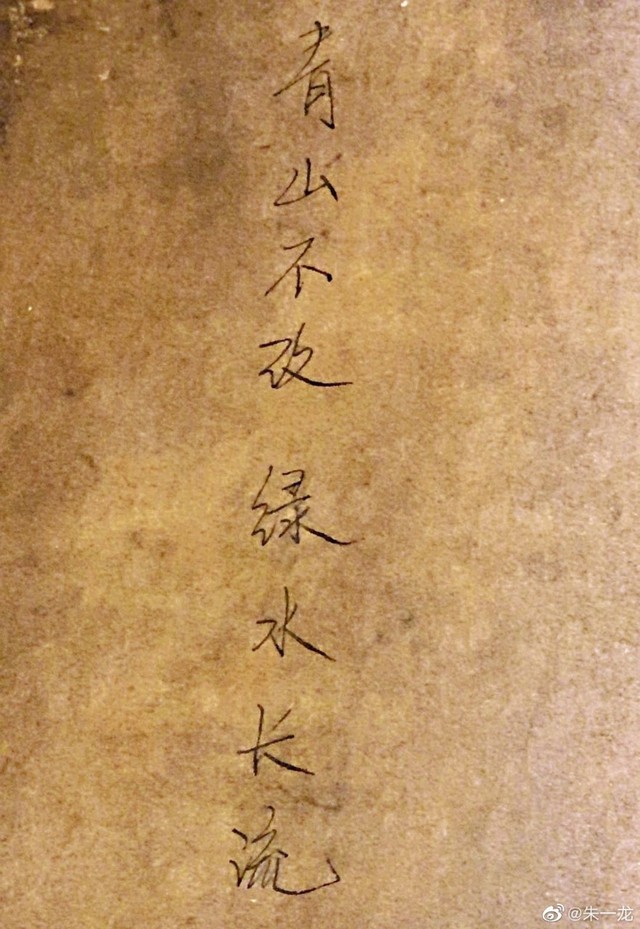 青山不改 绿水长流
@朱一龙